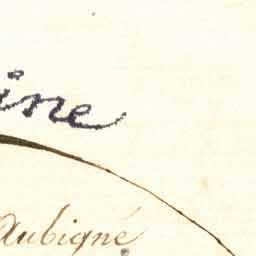 ine
Aubigné